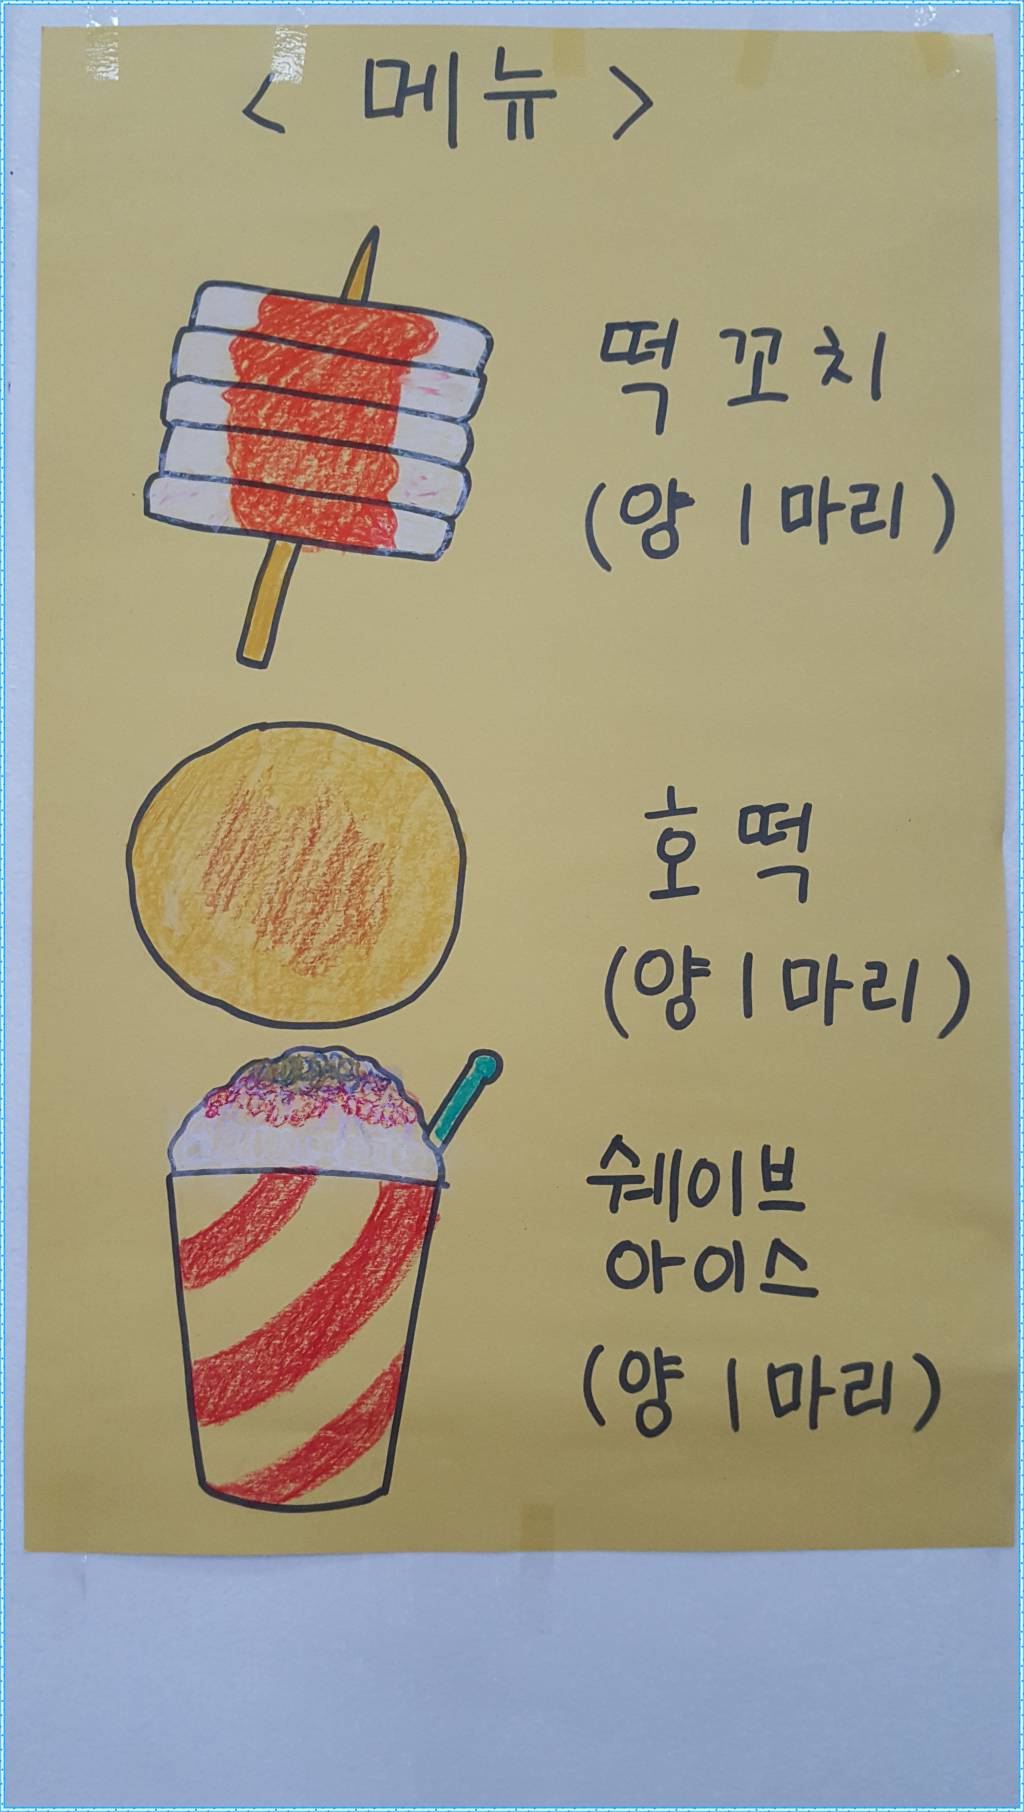 < 메뉴 >
떡 꼬치
(양 1마리)
호떡
(양 1마리)
쉐이브
아이스
(양 1마리)